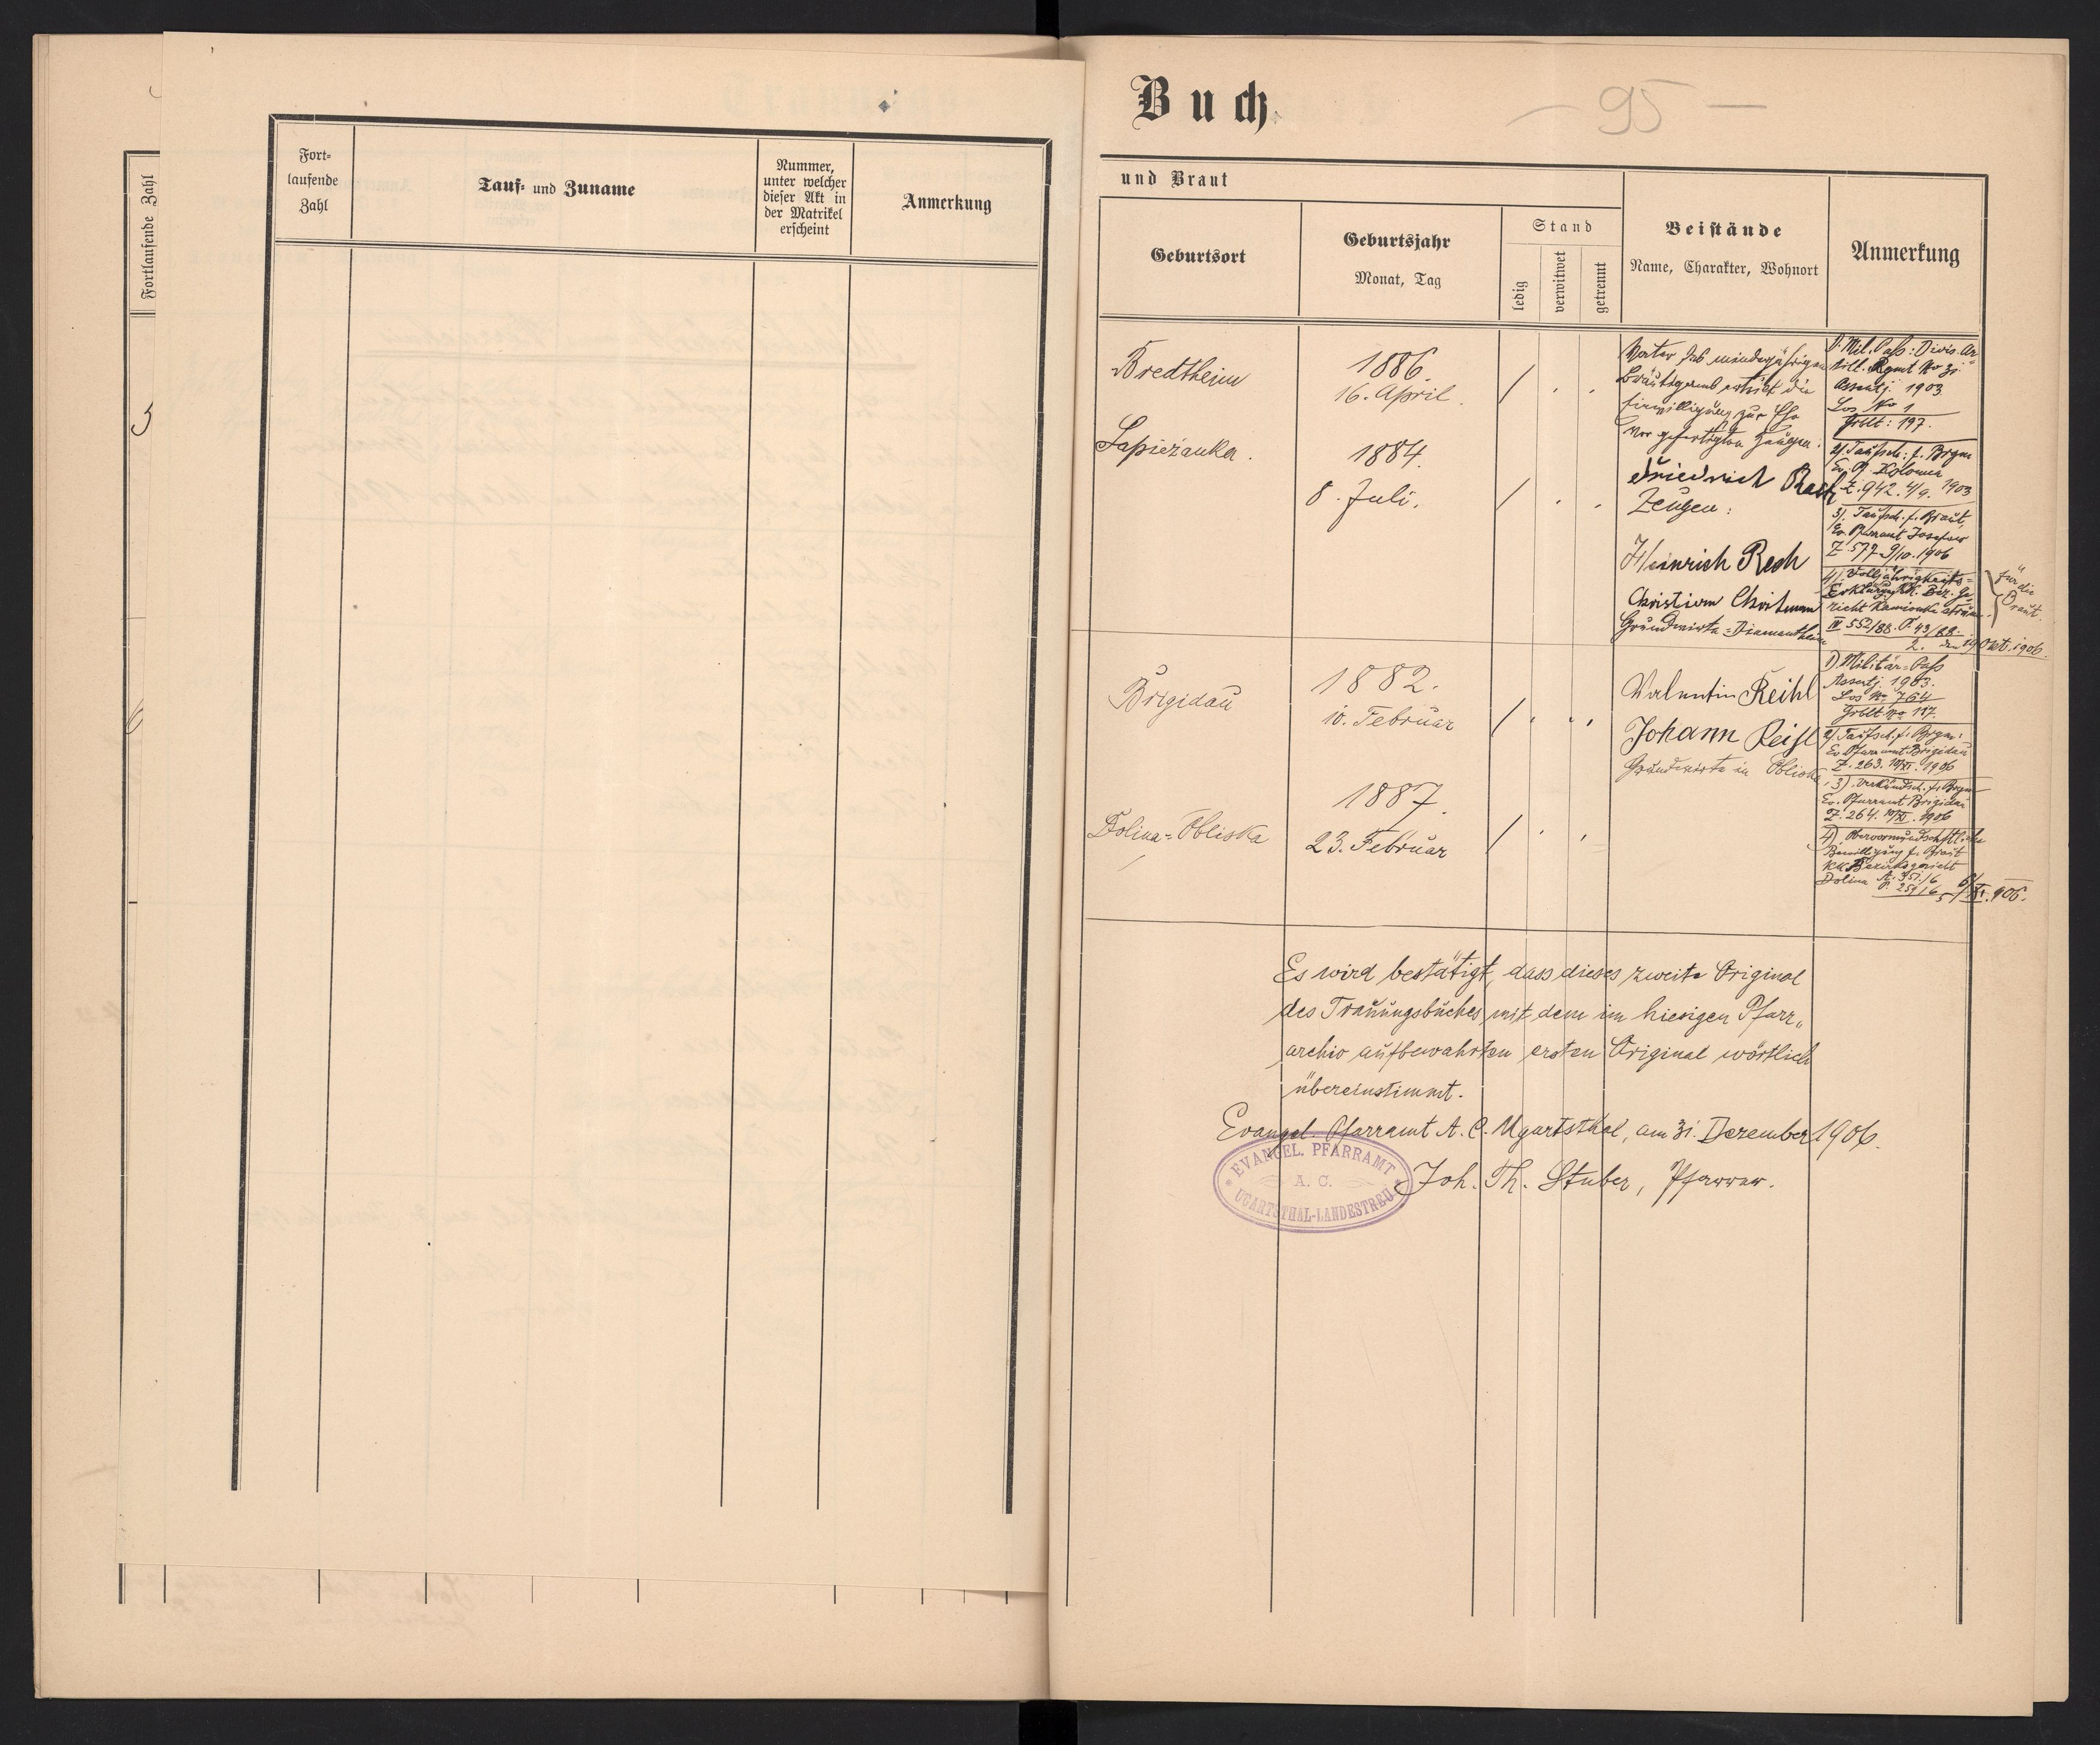 Fortlaufende Zahl
Fort-
laufende
Zahl
Tauf- und Zuname
Nummer,
unter welcher
dieser Akt in
der Matrikel
erscheint
Anmerkung
Buch
— 95 —
und Braut
Geburtsort
Geburtsjahr
Monat, Tag
Stand
ledig
verwitwet
getrennt
Beistände
Name, Charakter, Wohnort
Anmerkung
Bredtheim
1886.
16. April.
Sapieżanka.
1884.
8. Juli.
Vater des minderjährigen
Bräutigams erteilt die
Einwilligung zur Ehe
vor gefertigten Zeugen:
Friedrich
Zeugen:
Heinrich Resh
Christian
Grundwirte = Diamantheim
1) Mil. Pass: Divis. Ar-
till. Rgmt No 31
Assentj. 1903
Los No 1
Grblt: 197.
2) Taufsch. f. Brgm
Ev. Pf. Kolomea
Z. 942. 4/9. 1903
3). Taufsch. f. Braut,
Ev. Pfarramt Josefow
Z. 577 9/10. 1906
4). Volljährigkeits-
Erklärung Kk. Bez. Ge-
richt Kamionka
IV 552/88. P. 43/88.
2. den 19 Okt. 1906.
für die
Braut.
Brigidau
1882.
10. Februar
Dolina = Obliska
1887.
23. Februar
Valentin Reihl
Johann Reihl
Grundwirte in Obliska
1) Militär-Pass
Assentj. 1903.
Los No 764
Grblt No 117.
2) Taufsch. f. Brgm:
Ev. Pfarramt Brigidau
Z. 263. 10/XI. 1906
3), Verkündsch. f. Brgm
Ev. Pfarramt Brigidau
Z. 264. 10/XI. 1906
4), Obervormundschftliche
Bewilligung f. Braut
KK Bezirksgericht
Dolina
Es wird bestätigt, dass dieses zweite Original
des Trauungsbuches mit dem im hiesigen Pfarr„
archiv aufbewahrten ersten Original wörtlich
übereinstimmt.
Evangel. Pfarramt A. C. Ugartsthal, am 31. Dezember 1906.
EVANGEL. PFARRAMT
A. C.
UGARTSTHAL-LANDESTREU
Joh. Th. Stuber, Pfarrer.